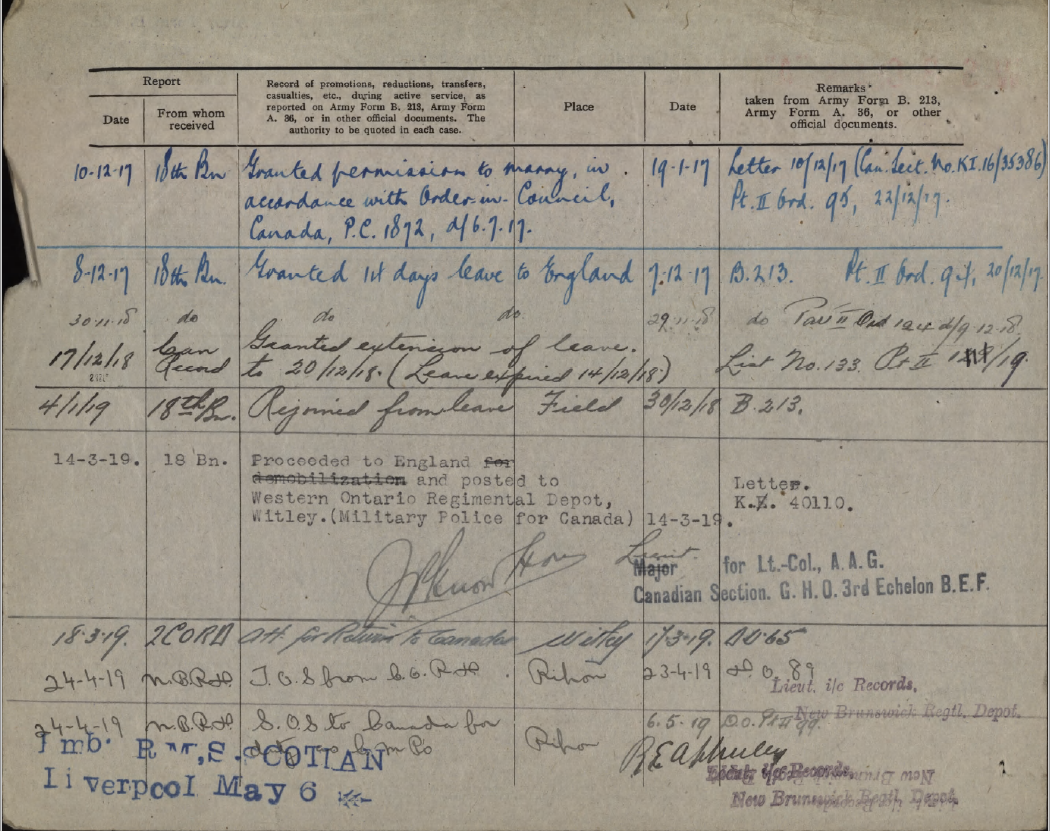 Report
Date
From whom received
Record of promotions, reductions, transfers,
casualties, etc., during active service, as
reported on Army Form B. 213, Army Form
A. 36, or in other official documents. The
authority to be quoted in each case.
Place
Date
Remarks
taken from Army Form B. 213,
Army Form A. 36, or other
official documents.
10-12-17 18th Bn Granted permission to marry, in 19-1-17 Letter 10/12/17 (Can. Sect. No. KI.16/35386)
accordance with Order-in-Council, Pt. II Ord. 95, 22/12/17.
Canada, P.C. 1872, d/6.7.17.
8-12-17 18th Bn. Granted 14 days leave to England 7-12-17 B.213. Pt. II Ord. 94, 20/12/17.
30-11-18 do do do 29-11-18 do Part II Ord 124 d/9-12-18.
17/12/18 Can Record Granted extension of leave.
to 20/12/18. (Leave expired 14/12/18) List No. 133 Pt II /19
4/1/19 18th Bn. Rejoined from leave Field 30/12/18 B.213.
14-3-19. 18 Bn. Proceeded to England for
demobilization and posted to Letter.
Western Ontario Regimental Depot, K.E. 40110.
Witley.(Military Police for Canada) 14-3-19.
Lieut.
Major for Lt.-Col., A.A.G.
Canadian Section. G.H.Q. 3rd Echelon B.E.F.
18.3.19. 2CORD Att. for Return to Canada Witley 17.3.19. DO.65
24-4-19 N.B.R.D. T.O.S from Ripon 23-4-19 D.O. 89
Lieut. i/c Records,
New Brunswick Regtl. Depot.
24-4-19 N.B.R.D. S.O.S to Canada for Ripon 6.5.19 D.O. Pt II 99.
Emb. R.M.S. SCOTIAN
Liverpool May 6
Lieut. i/c Records,
New Brunswick Regtl. Depot.